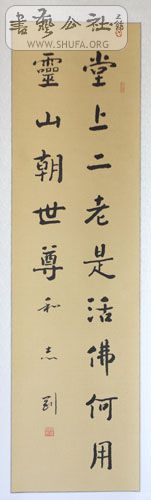 書艺公社
WWW.SHUFA.ORG
堂上二老是活佛何用
靈山朝世尊 和志剛